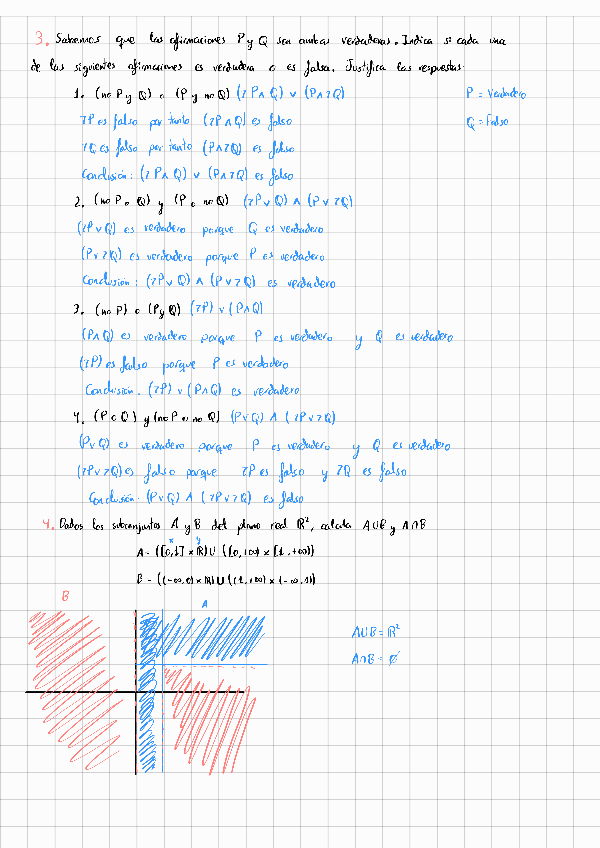 3. Sabemos que las afirmaciones P y Q son ambas verdaderas. Indica si cada una
de las siguientes afirmaciones es verdadera o es falsa. Justifica las respuestas.
1. (no P y Q) o (P y no Q) (¬P∧Q) ∨ (P∧¬Q)
P = Verdadero
¬P es falso por tanto (¬P∧Q) es falso
Q = Falso
¬Q es falso por tanto (P∧¬Q) es falso
Conclusión: (¬P∧Q) ∨ (P∧¬Q) es falso
2. (no P o Q) y (P o no Q) (¬P∨Q) ∧ (P∨¬Q)
(¬P∨Q) es verdadero porque Q es verdadero
(P∨¬Q) es verdadero porque P es verdadero
Conclusión: (¬P∨Q) ∧ (P∨¬Q) es verdadero
3. (no P) o (P y Q) (¬P) ∨ (P∧Q)
(P∧Q) es verdadero porque P es verdadero y Q es verdadero
(¬P) es falso porque P es verdadero
Conclusión. (¬P) ∨ (P∧Q) es verdadero
4. (P o Q) y (no P o no Q) (P∨Q) ∧ (¬P∨¬Q)
(P∨Q) es verdadero porque P es verdadero y Q es verdadero
(¬P∨¬Q) es falso porque ¬P es falso y ¬Q es falso
Conclusión: (P∨Q) ∧ (¬P∨¬Q) es falso
4. Dados los subconjuntos A y B del plano real ℝ², calcula A∪B y A∩B
x y
A = ([0,1] × ℝ) ∪ ((0,+∞) × [1,+∞))
B = ((-∞,0) × ℝ) ∪ ((1,+∞) × (-∞,1))
B
A
A∪B = ℝ²
A∩B = ∅